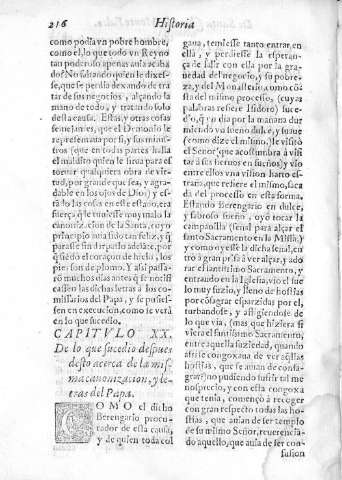 216 Historia
como podia vn pobre hombre,
como el, lo que todo vn Reyno
tan poderoso apenas auia acaba
do? No faltando quien le dixes-
se, que se perdia dexando de tra
tar de sus negocios, alçando la
mano de todo, y tratando solo
desta causa. Estas, y otras cosas
semejantes, que el Demonio le
representaua por si, y sus minis-
tros (que en todas partes halla
el maldito quien le sirua para es
tornar qualquiera obra de vir-
tud, por grande que sea, y agra-
dable en los ojos de Dios) y es-
tãdo las cosas en este estado, era
fuerça q̃ se tuuiesse muy malo la
canonizacion de la Santa, cuyo
principio auia sido tan feliz, y q̃
parasse sin ir passo adelãte, por
q̃ siẽdo el coraçon de hielo, los
pies son de plomo. Y assi passa-
rõ muchos dias antes q̃ se noti-
ficassen las dichas letras a los co-
missarios del Papa, y se pusies-
sen en execucion, como se verà
en lo que sucedio.
CAPITVLO XX.
De lo que sucedio despues
desto acerca de la mis-
ma canonizacion, y le-
tras del Papa.
COMO el dicho
Berengario procu-
rador de esta causa,
y de quien toda col
gaua, temiesse tanto entrar en
ella, y perdiesse la esperan-
ça de salir con ella por la gra-
uedad del negocio, y su pobre-
za, y del Monasterio, como cõs
ta del mismo processo, (cuyas
palabras refiere Isidoro) suce-
dio, q̃ vn dia por la mañana dur
miendo vn sueño dulce, y suaue
(como dize el mismo) le visitò
el Señor (que acostumbra à visi
tar à sus sieruos en sueños) y vio
entre ellos vna vision harto es-
traña, que refiere el mismo, saca
da del processo en esta forma.
Estando Berengario en dulce,
y sabroso sueño, oyò tocar la
campanilla (señal para alçar el
santo Sacramento en la Missa:)
y como oyesse la dicha señal, en
trò à gran prisa à ver alçar, y ado
rar el santissimo Sacramento, y
entrando en la Iglesia, vio el sue
lo muy suzio, y lleno de hostias
por cõsagrar esparzidas por el,
turbandose, y afligiendose de
lo que via, (mas que hiziera si
viera el santissimo Sacramento
entre aquella suziedad, quando
assi se congoxaua de ver aq̃llas
hostias, que se auian de consa-
grar?) no pudiendo sufrir tal me
nosprecio, y con esta congoxa
que tenia, començò à recoger
con gran respecto todas las hos
tias, que auian de ser templo
de su mismo Señor, reuerencia-
do aquello, que auia de ser con-
fusion